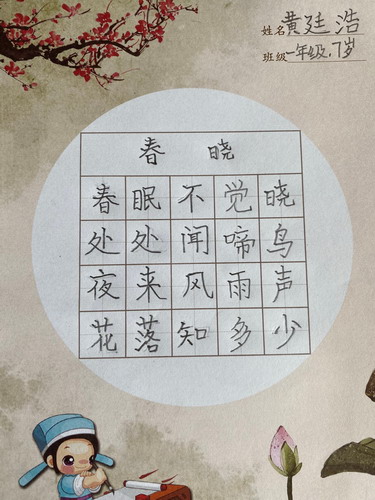 姓名 黄廷浩
班级 一年级，7岁
春晓
春眠不觉晓
处处闻啼鸟
夜来风雨声
花落知多少